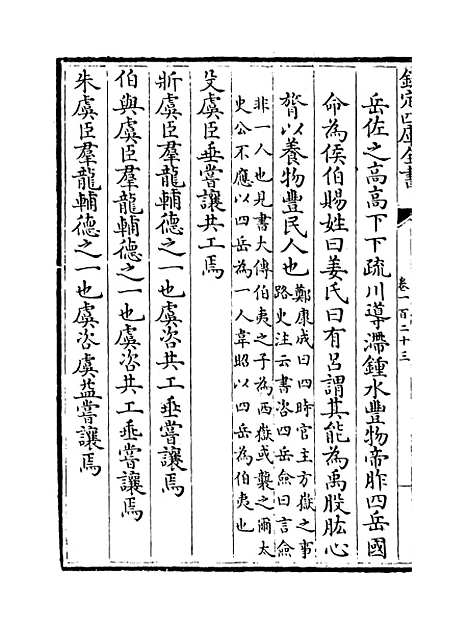 欽定四庫全書
卷一百二十三
岳佐之高高下下疏川導滯鍾水豐物帝胙四岳國
命為侯伯賜姓曰姜氏曰有呂謂其能為禹股肱心
膂以養物豐民人也
鄭康成曰四時官主方嶽之事
路史注云書咨四岳僉曰言僉
非一人也見書大傳伯夷之子為西嶽或襲之爾太
史公不應以四岳為一人韋昭以四岳為伯夷也
殳虞臣垂嘗讓共工焉
斨虞臣羣龍輔德之一也虞咨共工垂嘗讓焉
伯與虞臣羣龍輔德之一也虞咨共工垂嘗讓焉
朱虞臣羣龍輔德之一也虞咨虞益嘗讓焉